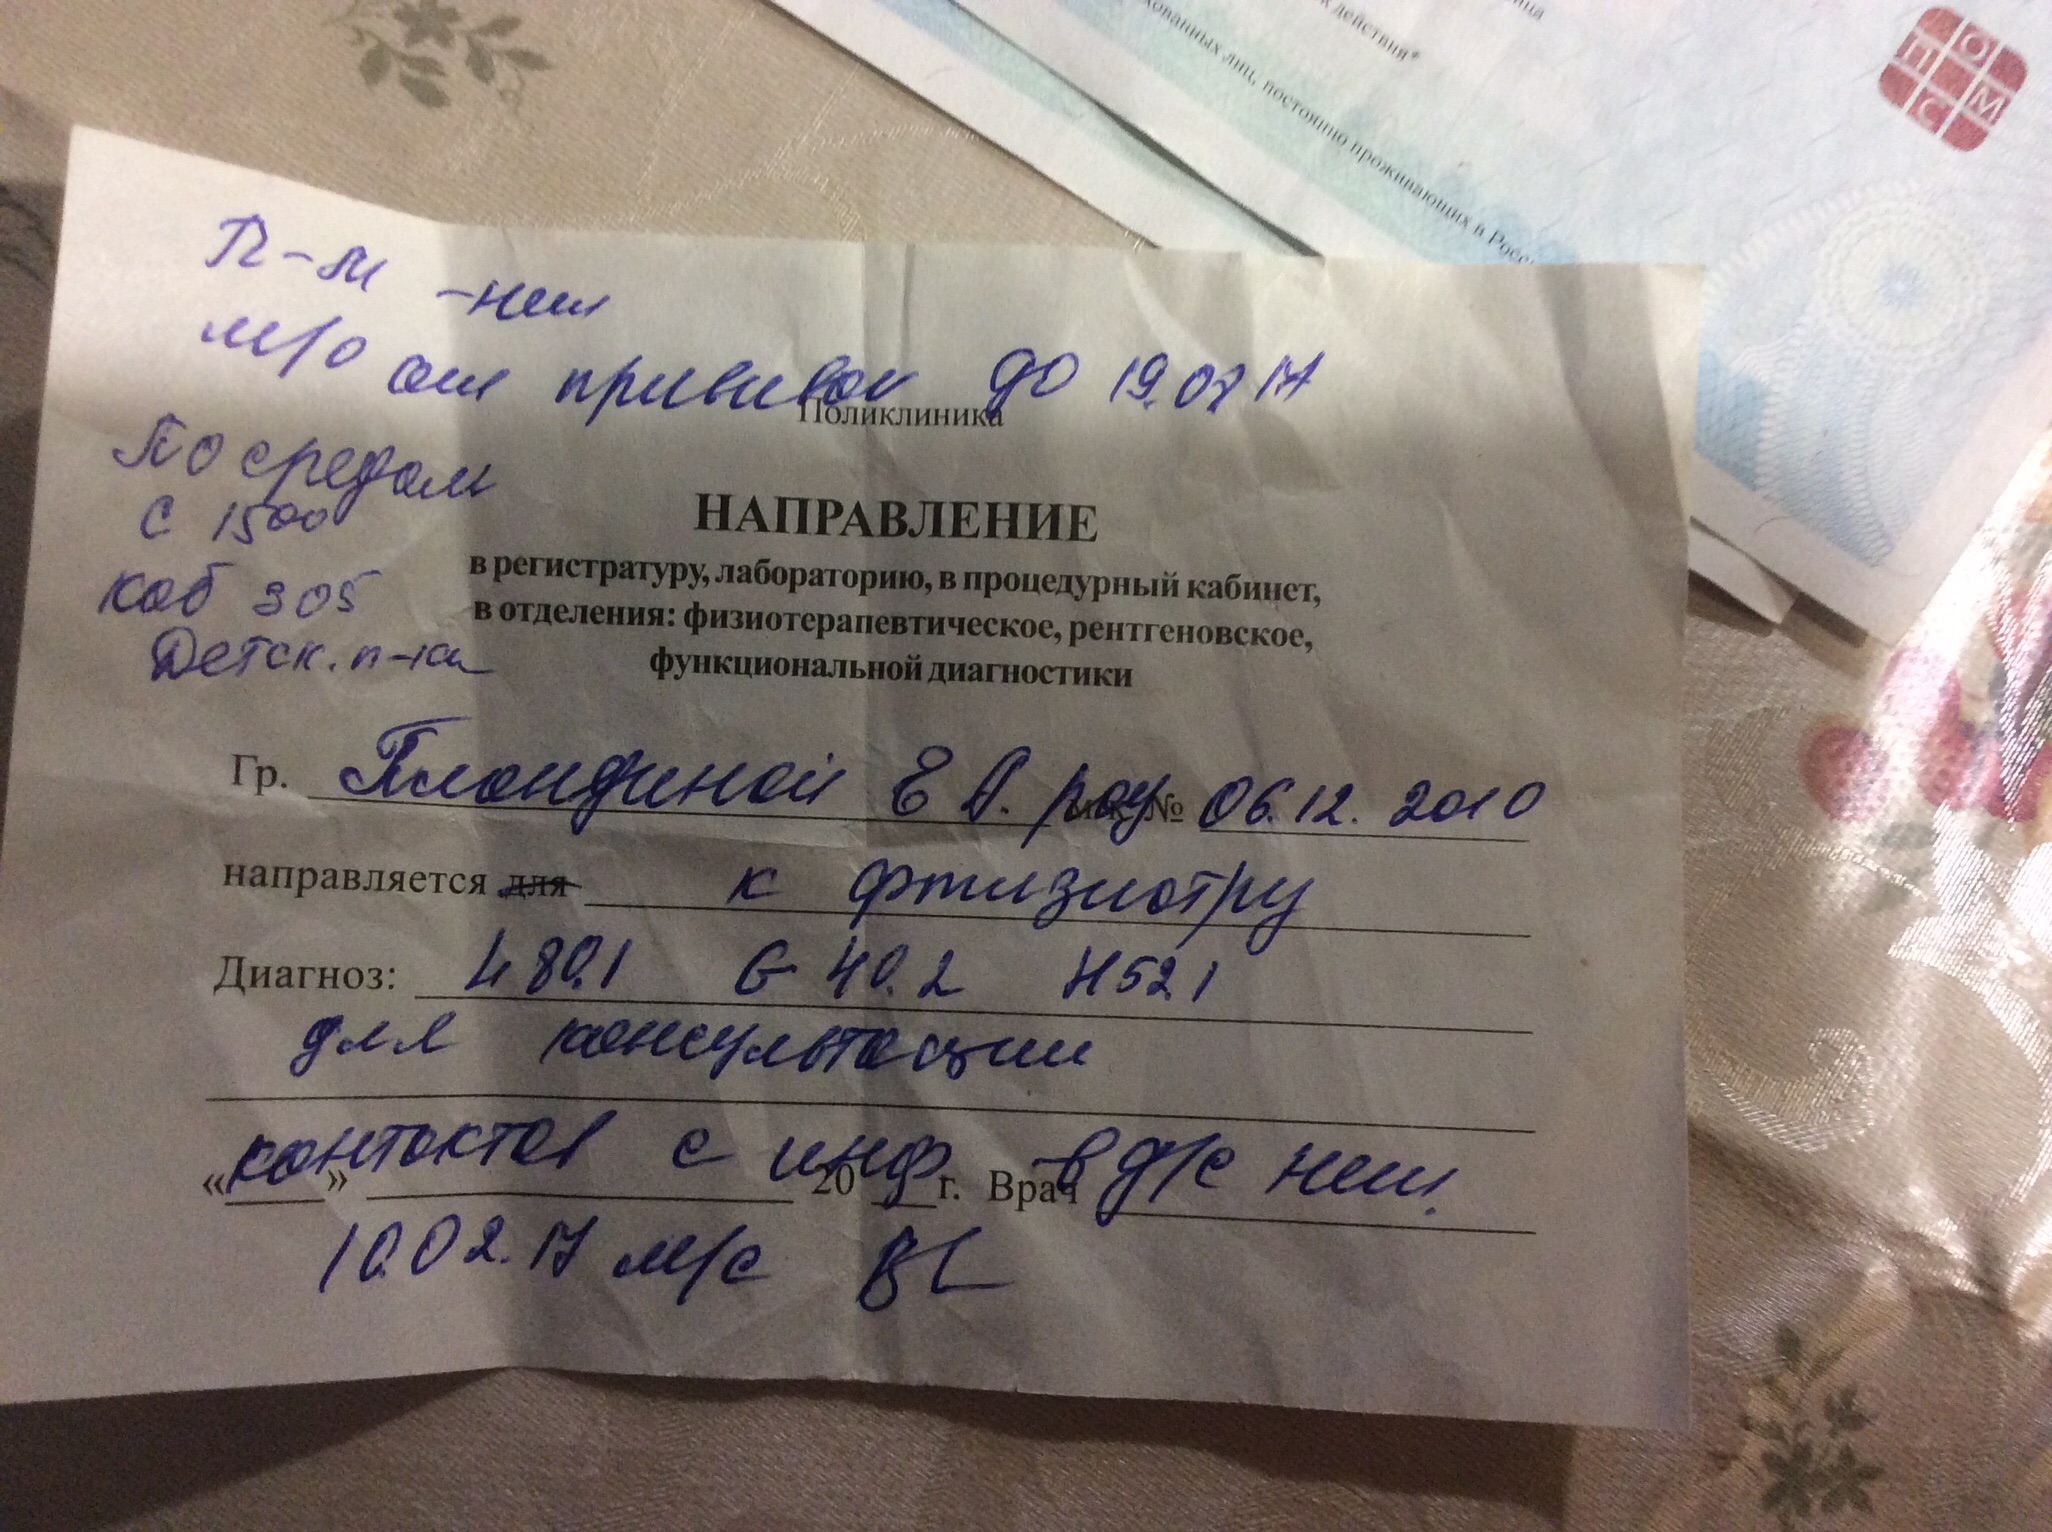 ина
к действия*
ованных лиц, постоянно проживающих в Росс
О
П М
С
-нет
м/о от прививок до 19.07 17
Поликлиника
По средам
с 15 00
каб 305
Детск. п-ка
НАПРАВЛЕНИЕ
в регистратуру, лабораторию, в процедурный кабинет,
в отделения: физиотерапевтическое, рентгеновское,
функциональной диагностики
Гр. Плондиной Е А. № 06.12. 2010
направляется для к фтизиотру
Диагноз: L 80.1 G 40.2 H52.1
для консультации
контактов с инф в д/с нет.
« » 20 г. Врач
10.02.17 м/с